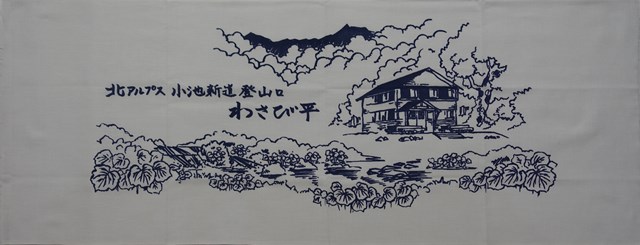 北アルプス 小池新道登山口
わさび平